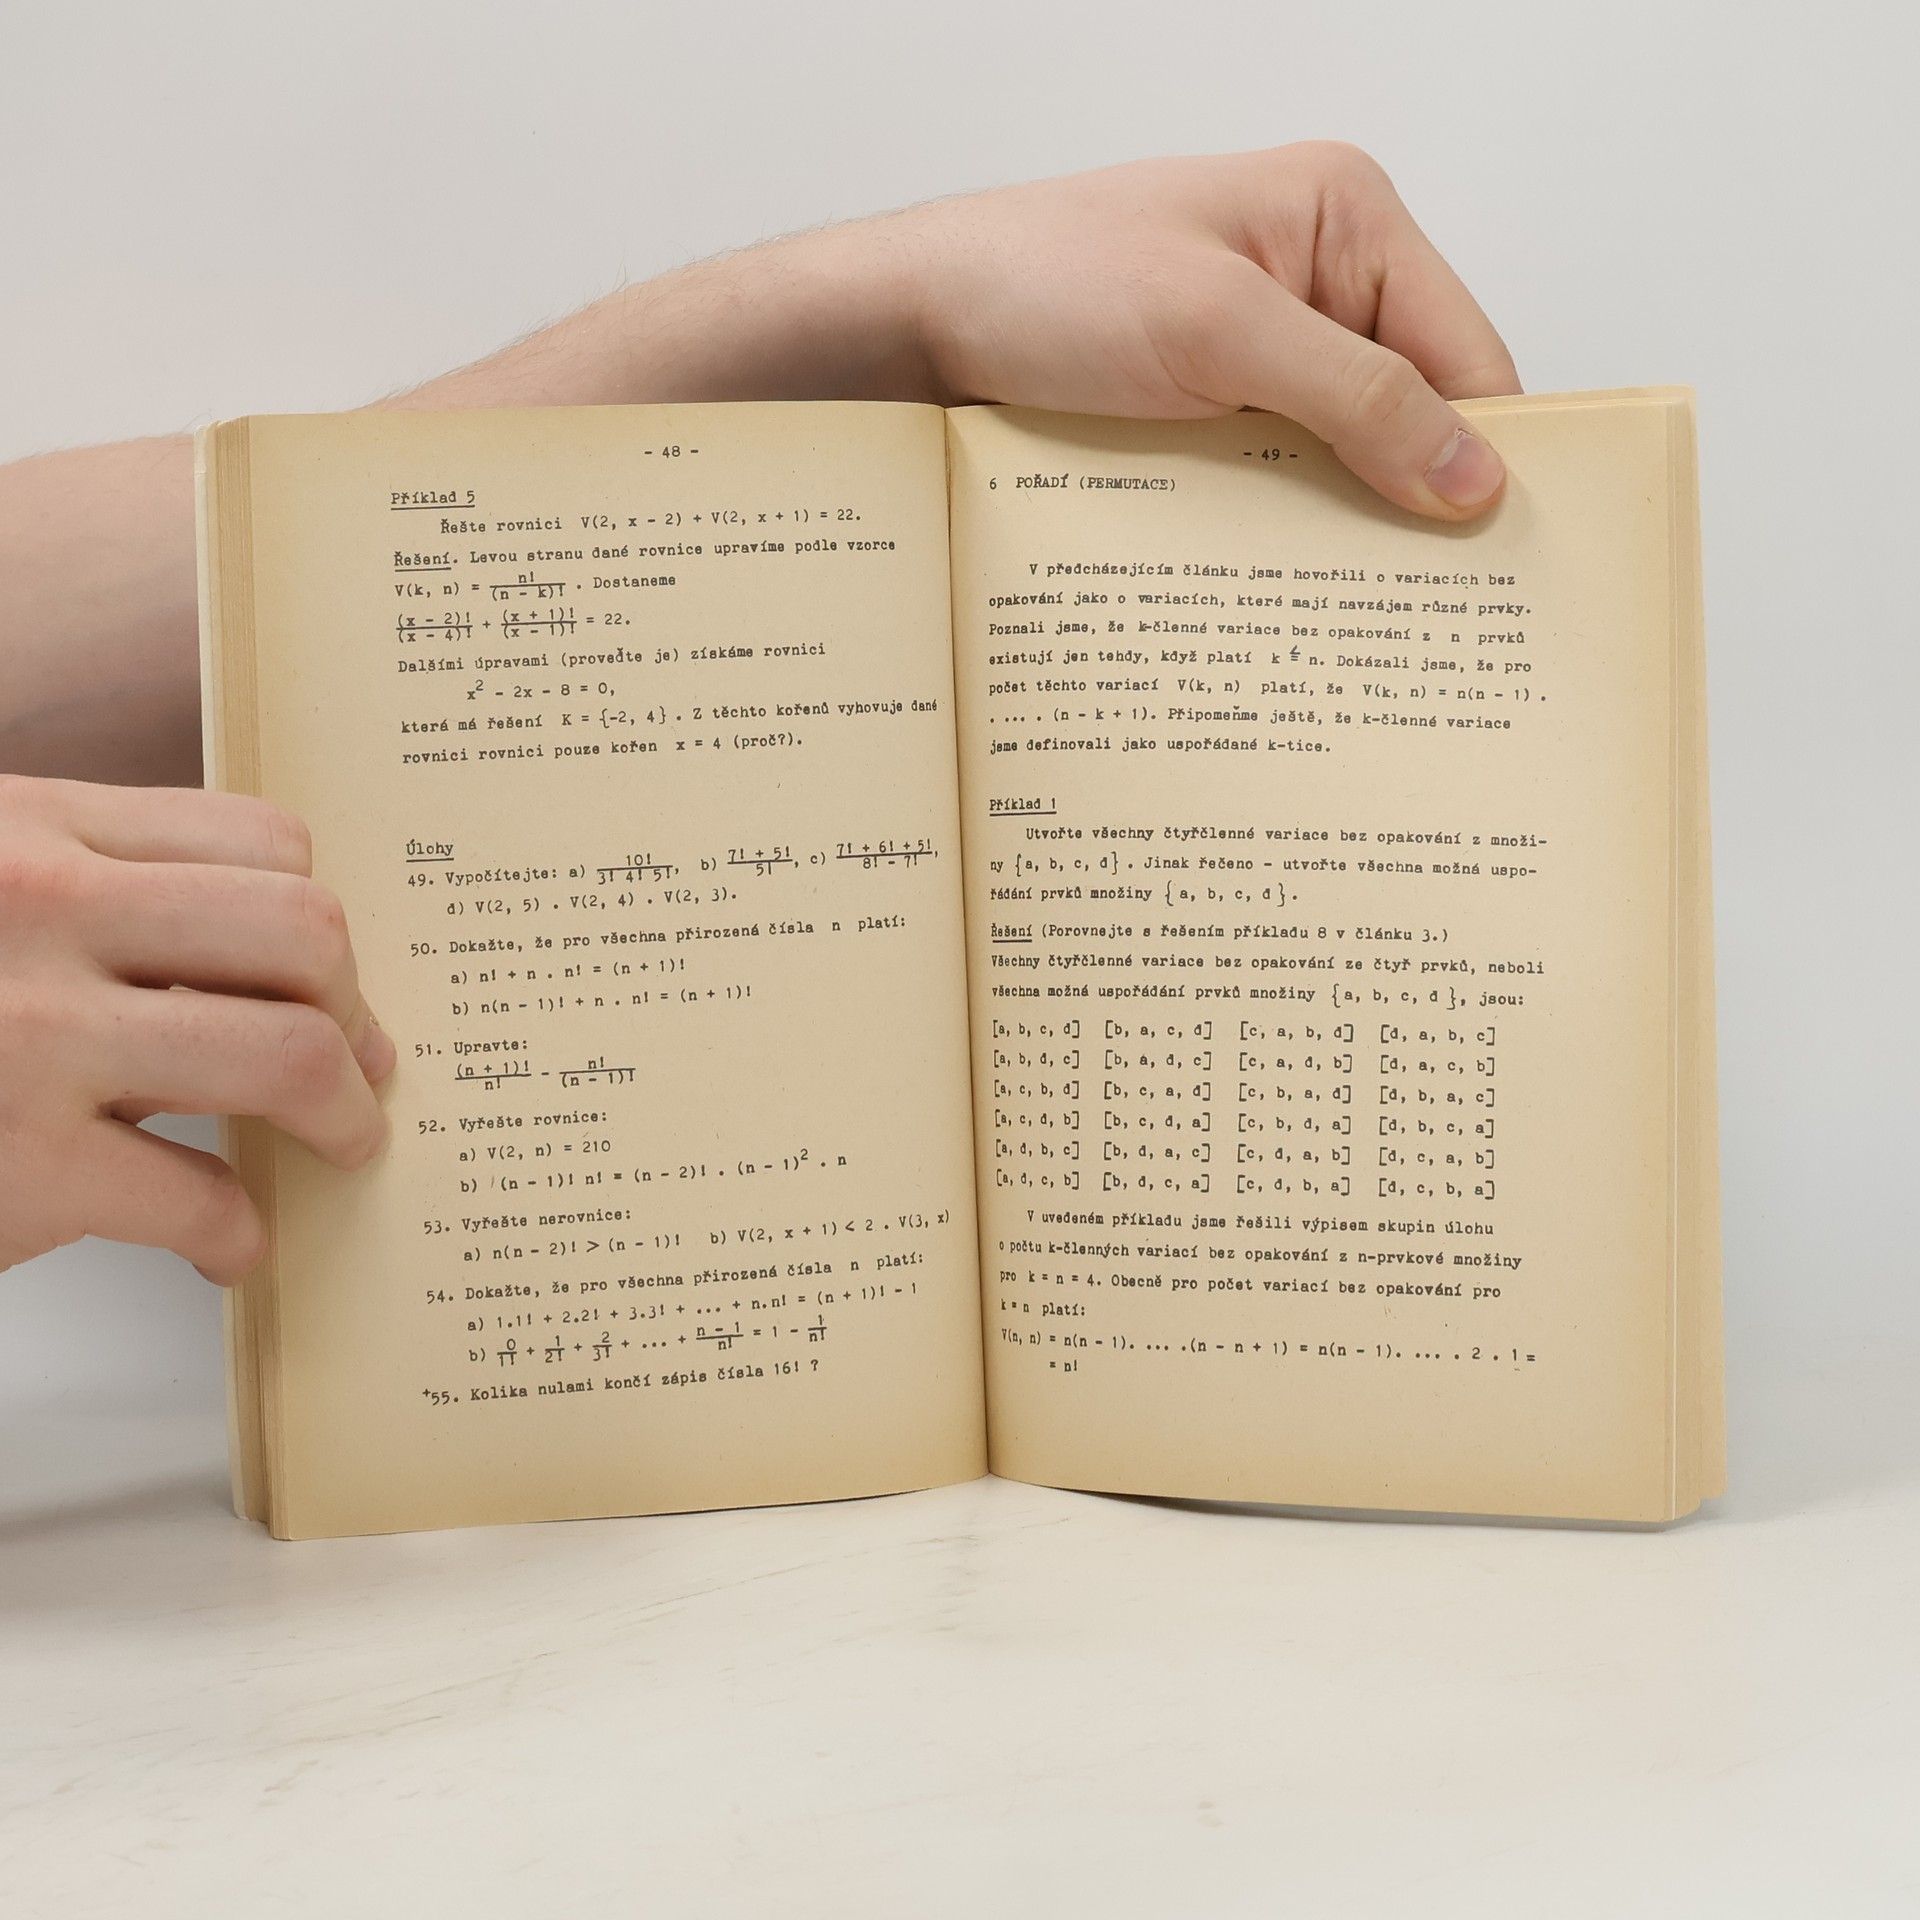 - 48 -
Příklad 5
Řešte rovnici V(2, x - 2) + V(2, x + 1) = 22.
Řešení. Levou stranu dané rovnice upravíme podle vzorce
V(k, n) = n!/(n - k)! . Dostaneme
(x - 2)!/(x - 4)! + (x + 1)!/(x - 1)! = 22.
Dalšími úpravami (proveďte je) získáme rovnici
x² - 2x - 8 = 0,
která má řešení K = {-2, 4} . Z těchto kořenů vyhovuje dané
rovnici rovnici pouze kořen x = 4 (proč?).
Úlohy
49. Vypočítejte: a) 10!/(3! 4! 5!), b) (7! + 5!)/5!, c) (7! + 6! + 5!)/(8! - 7!),
d) V(2, 5) . V(2, 4) . V(2, 3).
50. Dokažte, že pro všechna přirozená čísla n platí:
a) n! + n . n! = (n + 1)!
b) n(n - 1)! + n . n! = (n + 1)!
51. Upravte:
(n + 1)!/n! - n!/(n - 1)!
52. Vyřešte rovnice:
a) V(2, n) = 210
b) (n - 1)! n! = (n - 2)! . (n - 1)² . n
53. Vyřešte nerovnice:
a) n(n - 2)! > (n - 1)! b) V(2, x + 1) < 2 . V(3, x)
54. Dokažte, že pro všechna přirozená čísla n platí:
a) 1.1! + 2.2! + 3.3! + ... + n.n! = (n + 1)! - 1
b) 0/1! + 1/2! + 2/3! + ... + (n - 1)/n! = 1 - 1/n!
+55. Kolika nulami končí zápis čísla 16! ?
- 49 -
6 POŘADÍ (PERMUTACE)
V předcházejícím článku jsme hovořili o variacích bez
opakování jako o variacích, které mají navzájem různé prvky.
Poznali jsme, že k-členné variace bez opakování z n prvků
existují jen tehdy, když platí k ≤ n. Dokázali jsme, že pro
počet těchto variací V(k, n) platí, že V(k, n) = n(n - 1) .
. ... . (n - k + 1). Připomeňme ještě, že k-členné variace
jsme definovali jako uspořádané k-tice.
Příklad 1
Utvořte všechny čtyřčlenné variace bez opakování z množi-
ny {a, b, c, d} . Jinak řečeno - utvořte všechna možná uspo-
řádání prvků množiny {a, b, c, d}.
Řešení (Porovnejte s řešením příkladu 8 v článku 3.)
Všechny čtyřčlenné variace bez opakování ze čtyř prvků, neboli
všechna možná uspořádání prvků množiny {a, b, c, d}, jsou:
[a, b, c, d] [b, a, c, d] [c, a, b, d] [d, a, b, c]
[a, b, d, c] [b, a, d, c] [c, a, d, b] [d, a, c, b]
[a, c, b, d] [b, c, a, d] [c, b, a, d] [d, b, a, c]
[a, c, d, b] [b, c, d, a] [c, b, d, a] [d, b, c, a]
[a, d, b, c] [b, d, a, c] [c, d, a, b] [d, c, a, b]
[a, d, c, b] [b, d, c, a] [c, d, b, a] [d, c, b, a]
V uvedeném příkladu jsme řešili výpisem skupin úlohu
o počtu k-členných variací bez opakování z n-prvkové množiny
pro k = n = 4. Obecně pro počet variací bez opakování pro
k = n platí:
V(n, n) = n(n - 1). ... .(n - n + 1) = n(n - 1). ... . 2 . 1 =
= n!